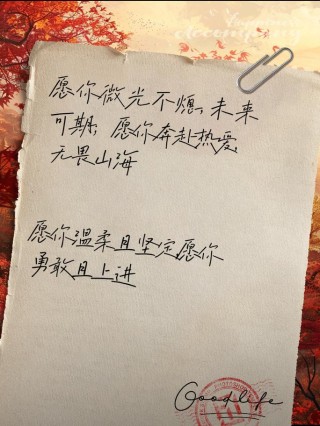 愿你微光不熄,未来
可期;愿你奔赴热爱,
无畏山海
愿你温柔且坚定,愿你
勇敢且上进
Goodlife